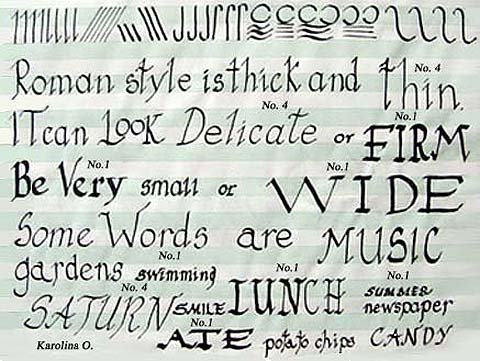 Roman style is thick and thin.
No. 4
No. 4
No.1
IT can LOOK Delicate or FIRM
No.1
No.1
Be Very small or WIDE
Some Words are MUSIC
No.1
No.1
No.1
gardens swimming LUNCH SUMMER
No. 4
SATURN SMILE newspaper
No.1
Karolina O. ATE potato chips CANDY